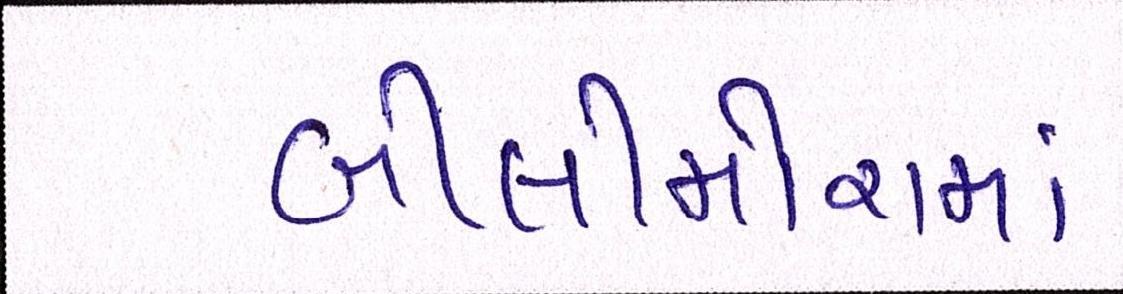 બીલીમોરામાં